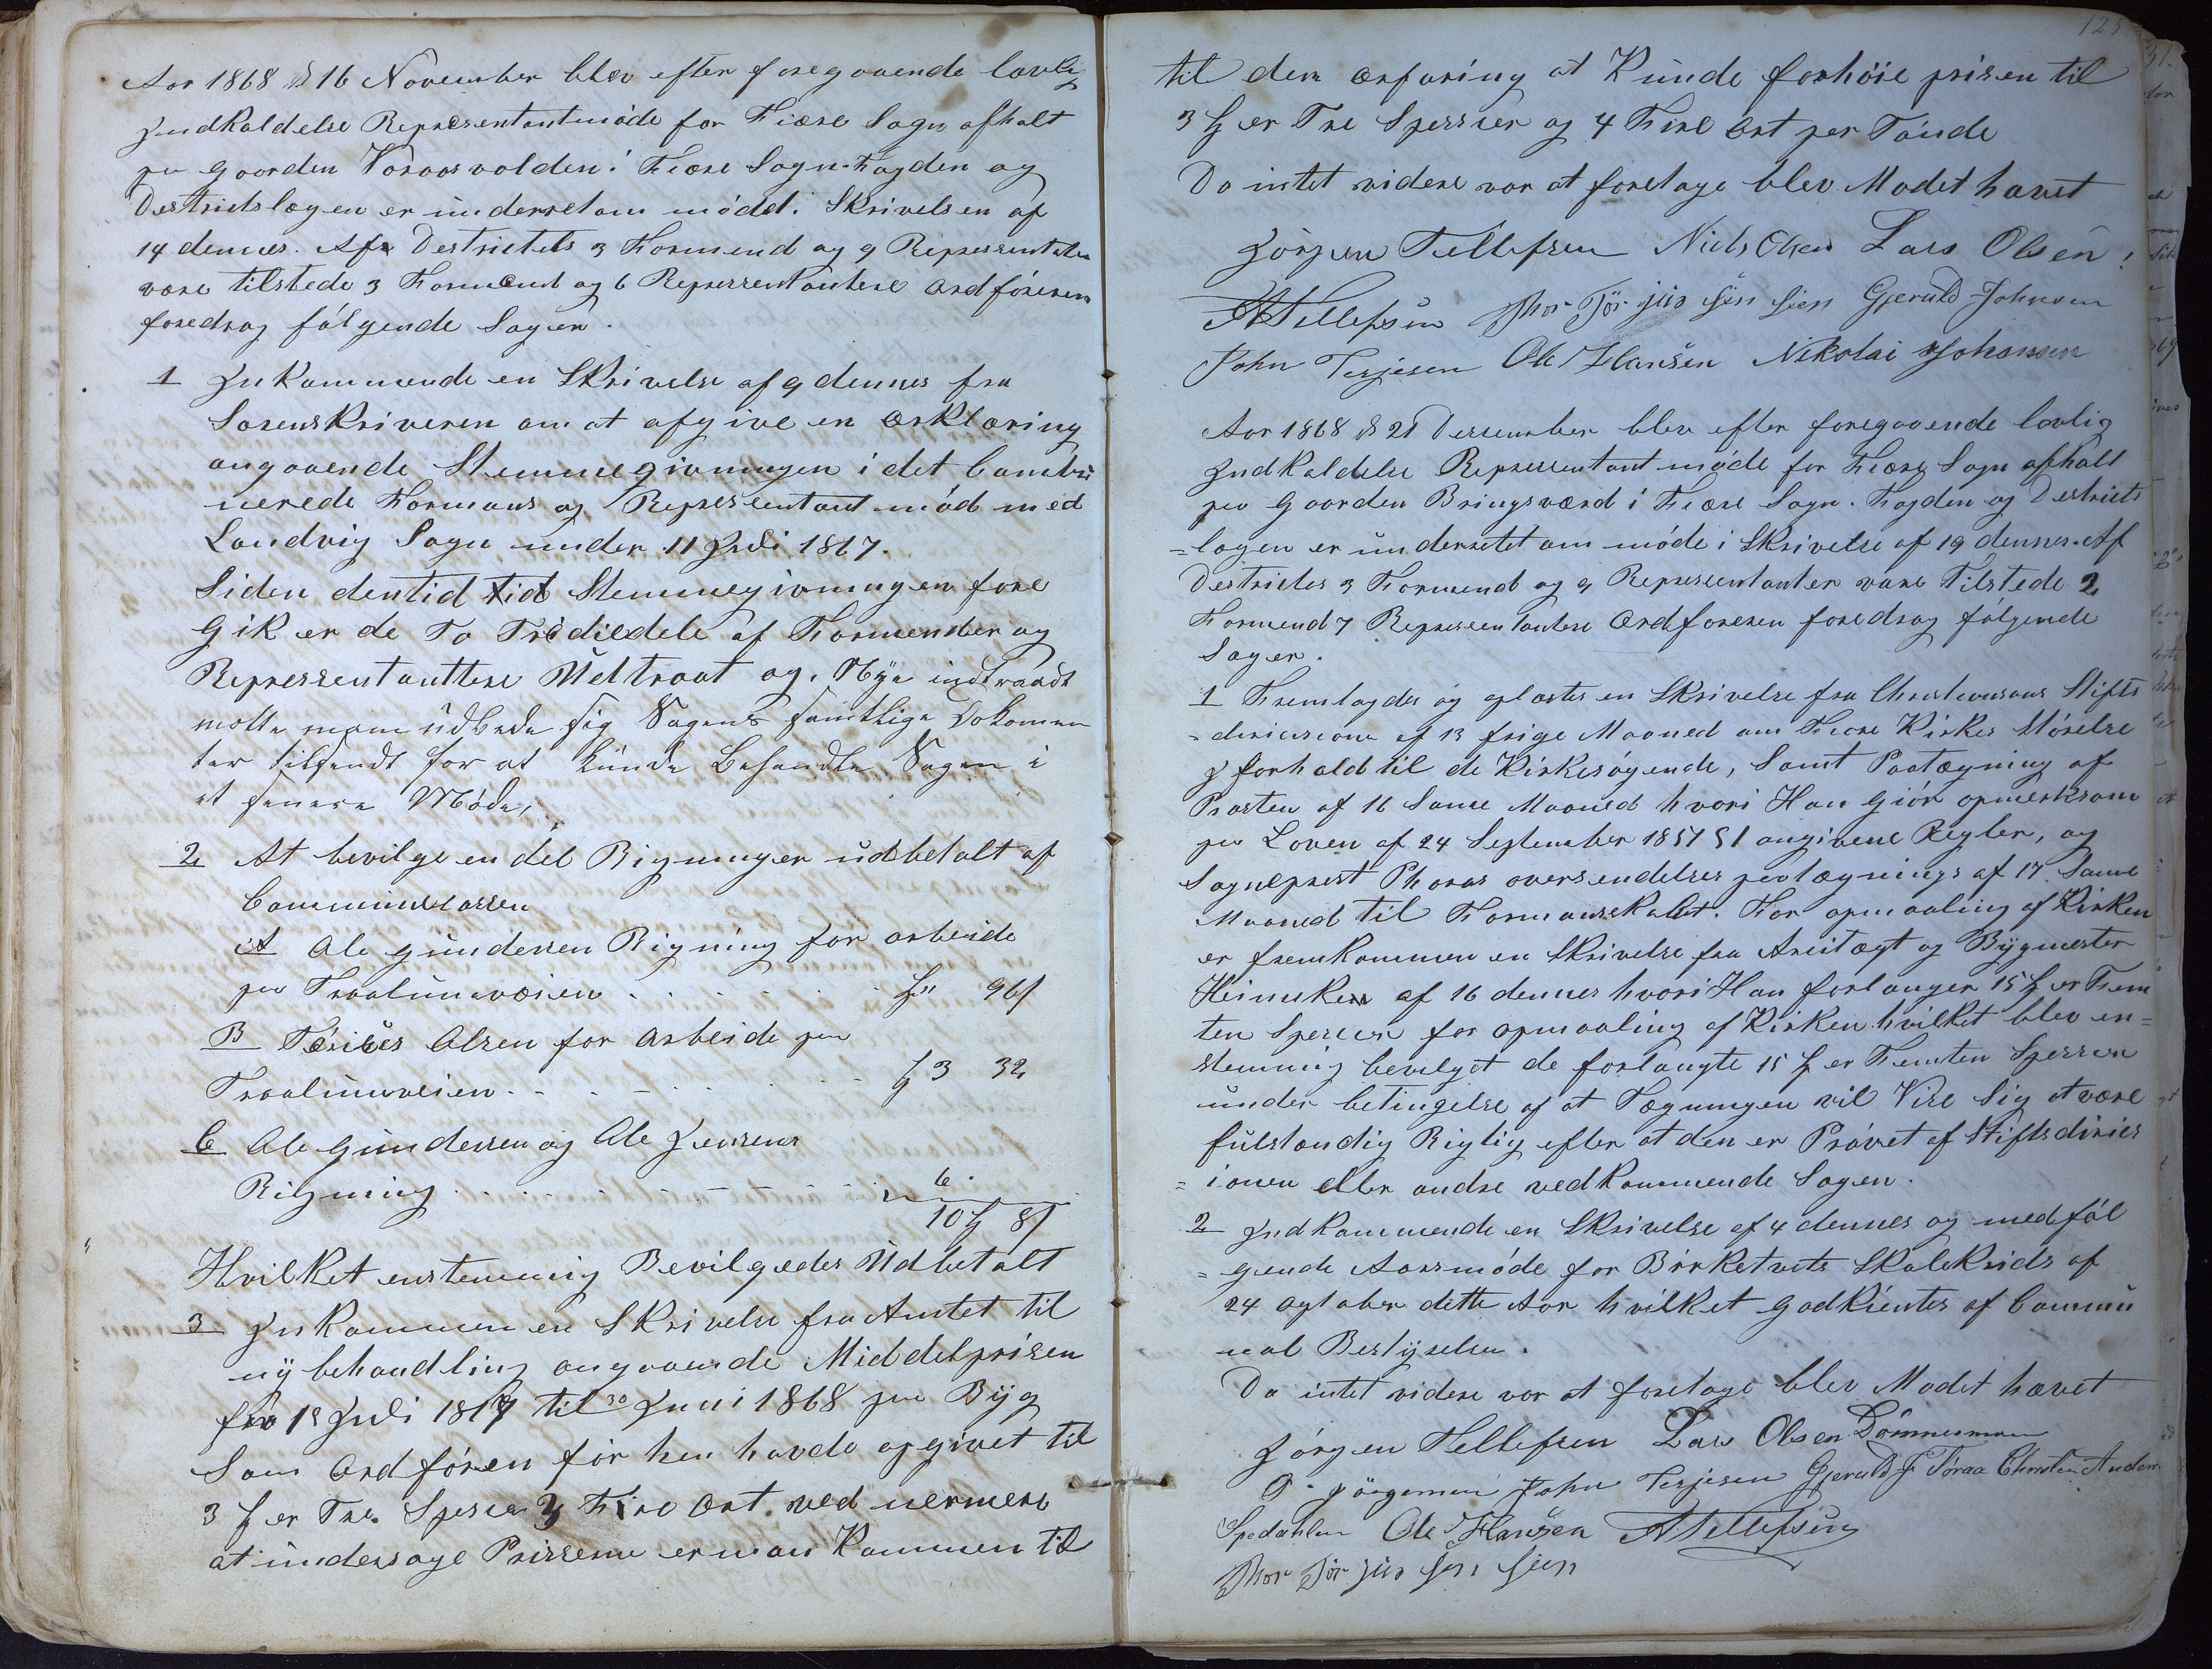 Aar 1868 d 16 November blev efter foregaaende lovlig
Jndkaldelse Represententmöde for Fiære Sogn afholt
pu gaarden Voraasvolden i Fiære Sogn. Fogden og
Destrictslægen er underretom mödet i Skrivelsen af
14 dennes. Af Destrictets 3 Formend og 9 Representanter
vare tilstede 3 Formend og 6 Representantere Ordföreren
foredrog fölgende Sager.
1 Jnkommende en Skrivelse af 9 dennes fra
Sorenskriveren om at afgive en Ærklæring
angaaende Stemmegivningen i det Combi
nerede Formans og Representant möd med
Landvig Sogn under 11 Juli 1867.
Siden dentid tid Stemmegivningen fore
Gik er de To Trediedele af Formender og
Repressentanttere Udtraat og. Nye indtraadt
motte man udbede sig Sagens samtlige Dokomen
ter tilsendt for at kunde Behandle Sagen i
et senere Möde,
2 At bevilge en del Rigninger udbetalt af
Communecassen
A Ole gundersen Rigning for arbeide
pu Traalumveien . . . . . . . . " 96 ſ
B Olsen for Arbeide pu
Traalumveien . . . . . . . . 3 32
C Ole Gundersen og Ole Jensens
Rigning . . . . . . . . . " 6
10 8 ſ
Hvilket enstemmig Bevilgedes Udbetalt
3 Jnkommen en Skrivelse fra Amtet til
ny behandling angaaende Middelprisen
fra 1s Juli 1867 til 30 Juni 1868 paa Byg
Som Ordfören för hen havde opgivet til
3 er Tre Specier 3 Fire Ort. ved nermere
at undersage Prissene er man Kommen til

125
til den ærfaring at Kunde forhöie prisen til
3 er Tre Spessier og 4 Fire Ort per Tönde
Da intet videre var at foretage blev Modet hævet
Jörgen Tellefsen Niels Olsen Lars Olsen
A Tellefsen Thor Jör jus sen Gjeruld Johnsen
John Terjesen Ole Hansen Nikolai Johansen
Aar 1868 d 21 Dersember blev efter foregaaende lovlig
Jndkaldelse Representant möde for Fiære Sogn afholt
paa Gaarden Bringsværd i Fiære Sogn. Fogden og Destricts
= lægen er underretet om möde i Skrivelse af 19 dennes. Af
Destrictes 3 Formend og 9 Representanter vare Tilstede 2
Formend 7 Representantere Ordforeren foredrog fölgende
Sager.
1 Fremlagdes og oplæstes en Skrivelse fra Christiansans Stifts
= direcsione af 13 frige Maaned om Fiære Kirkes Störelse
J forhold til de Kirkesögende, Samt Paategning af
Prosten af 16 Same Maaned hvori Han Giör opmerksom
paa Loven af 24 September 1851 § 1 angivene Regler, og
Sogneprest Phoras oversendelses potægnings af 17 Same
Maaned til Formanskabet. For opmaaling af Kirken
er fremkommen en Skrivelse fra Arcitægt og Bygmester
af 16 dennes hvori Han forlanger 15 er Fem
ten Specier for opmaaling af Kirken hvilket blev en=
stemmig bevilget de forlangte 15 er Femten Spessier
under betingelse af at Tægningen vil Vise Sig at være
fulstændig Rigtig efter at den er Prövet af Stiftsdirics
= ionen eller andre vedkommende Sagen.
2 Jndkommende en Skrivelse af 4 dennes og medföl
= gende Aarsmöde for Birketveits Skolekrids af
24 Ogtober dette Aar hvilket godkientes af Commu
nal Bestyrelsen.
Da intet videre var at foretage blev Modet hævet
Jörgen Tellefsen Lars Olsen Dömmesmoen
O. Jörgensen John Terjesen Gjeruld J Töraa Christen Anders
Spedahlen Ole Hansen A Tellefsen
Thor Jör jus sen